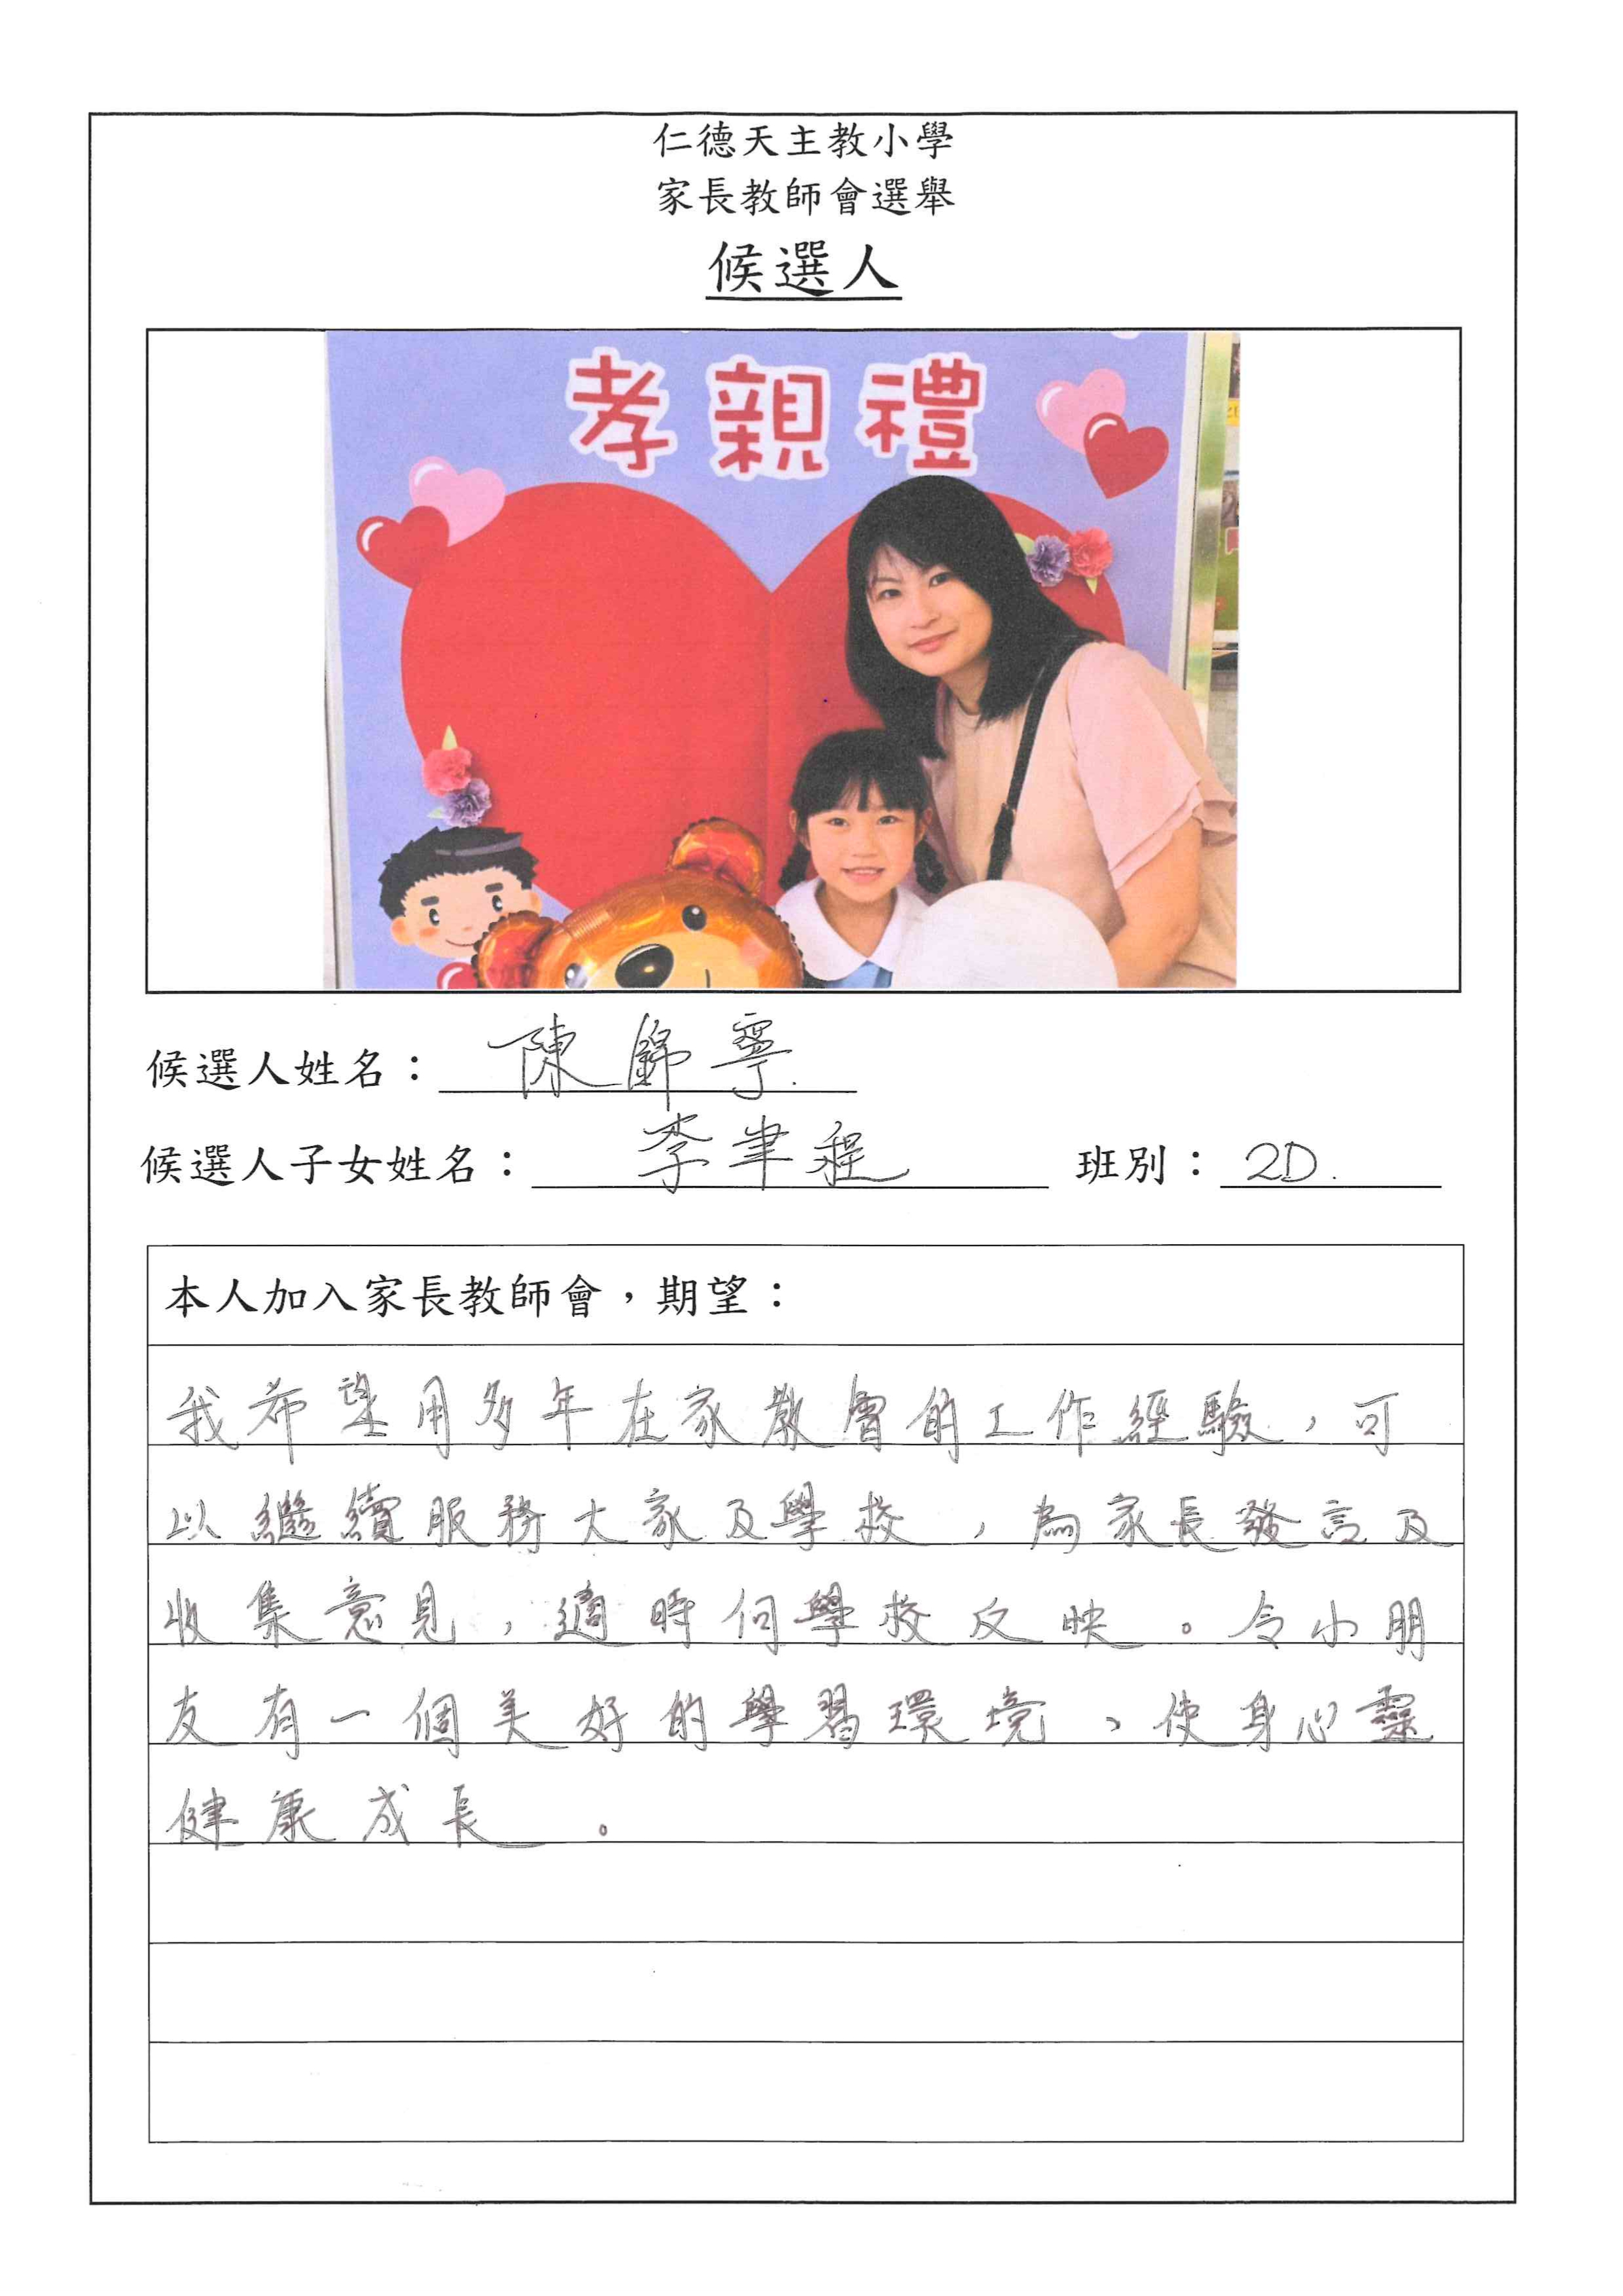 仁德天主教小學
家長教師會選舉
候選人
孝親禮
候選人姓名：陳錦寧
候選人子女姓名：李聿程 班別：2D.
本人加入家長教師會，期望：
我希望用多年在家教會的工作經驗，可
以繼續服務大家及學校，為家長發言及
收集意見，適時向學校反映。令小朋
友有一個美好的學習環境，使身心靈
健康成長。